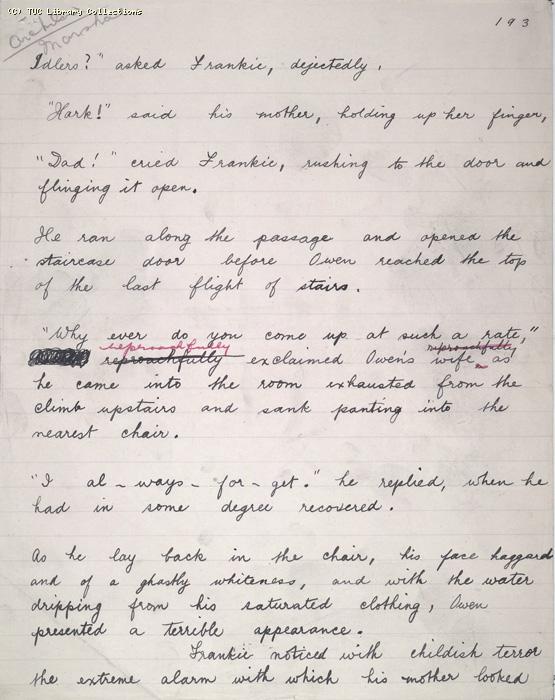 (C) TUC Library Collections
193
Idlers?" asked Frankie, dejectedly.
"Hark!" said his mother, holding up her finger,
"Dad!" cried Frankie, rushing to the door and
flinging it open.
He ran along the passage and opened the
staircase door before Owen reached the top
of the last flight of stairs.
"Why ever do you come up at such a rate,"
reproachfully reproachfully
reproachfully exclaimed Owen's wife as
he came into the room exhausted from the
climb upstairs and sank panting into the
nearest chair.
"I al-ways-for-get." he replied, when he
had in some degree recovered.
As he lay back in the chair, his face haggard
and of a ghastly whiteness, and with the water
dripping from his saturated clothing, Owen
presented a terrible appearance.
Frankie noticed with childish terror
the extreme alarm with which his mother looked